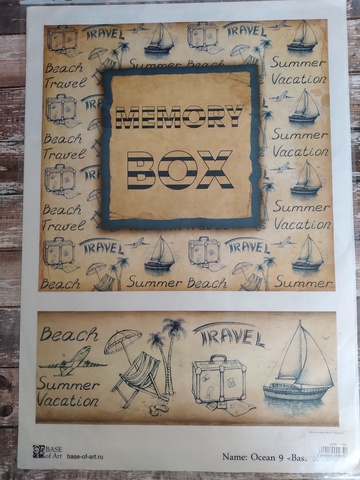 TRAVEL
TRAVEL
Beach
Summer
Beach
Summer
Travel
Vacation
MEMORY
BOX
Beach
Travel
Summer
Vacation
Beach
Travel
Summer
Vacation
TRAVEL
TRAVEL
Beach
Summer
Beach
Summer
Beach
TRAVEL
Summer
Vacation
BASE
of Art
base-of-art.ru
Name: Ocean 9 «Base